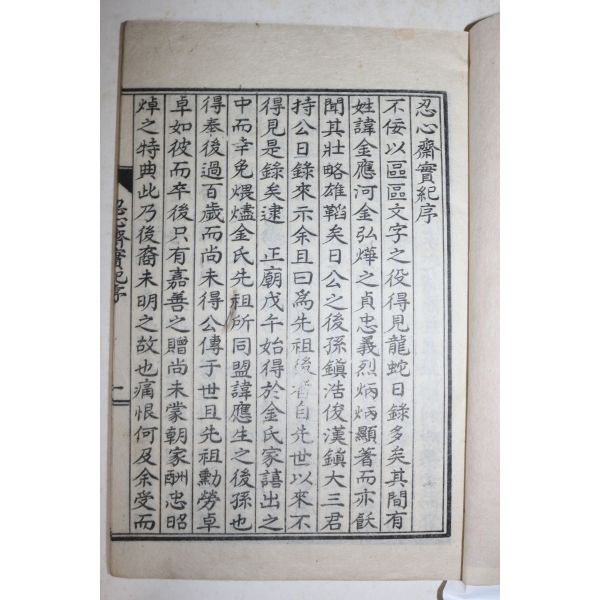 忍心齋實紀序
不佞以區區文字之役得見龍蛇日錄多矣其間有
姓諱金應河金弘燁之貞忠義烈炳炳顯著而亦飫
聞其壯略雄韜矣日公之後孫鎭浩俊漢鎭大三君
持公日錄來示余且曰爲先祖後者自先世以來不
得見是錄矣逮 正廟戊午始得於金氏家譆出之
中而幸免煨燼金氏先祖所同盟諱應生之後孫也
得奉後過百歲而尚未得公傳于世且先祖勳勞卓
卓如彼而卒後只有嘉善之贈尚未蒙朝家酬忠昭
焯之特典此乃後裔未明之故也痛恨何及余受而
忍心齋實紀序 一